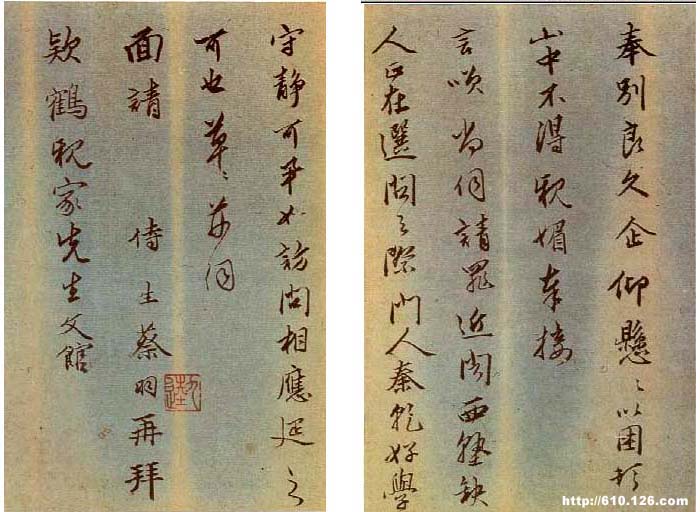 奉別良久企仰懸〻以困於
山中不得親媚奉接
言尚伺請罪近聞西塾缺
人正在選之際門人秦乾好學
守靜可訪問相應延之
可也草〻并伺
面請 侍生蔡羽再拜
欵鶴親家先生文館
http://610.126.com